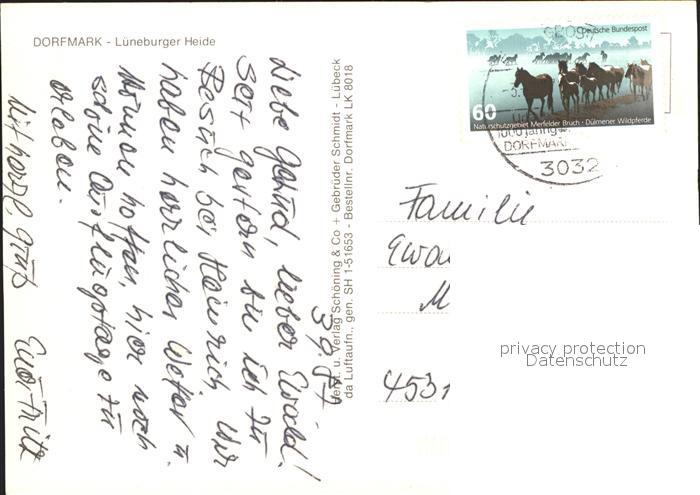 DORFMARK - Lüneburger Heide
3.9.87
Liebe Gertrud, lieber Ewald!
Seit gestern bin ich zu
Besuch bei Heinrich. Wir
haben herrliches Wetter u.
können hoffen, hier noch
schöne Ausflugstage zu
erleben.
Mit herzl. Gruß Euer Fritz
Verl. u. Verlag Schöning & Co + Gebrüder Schmidt - Lübeck
da Luftaufn., gen. SH 1-51653 - Bestellnr. Dorfmark LK 8018
Deutsche Bundespost
60
Naturschutzgebiet Merfelder Bruch · Dülmener Wildpferde
DORFMARK
3032
Familie
Ewa
M
453
privacy protection
Datenschutz